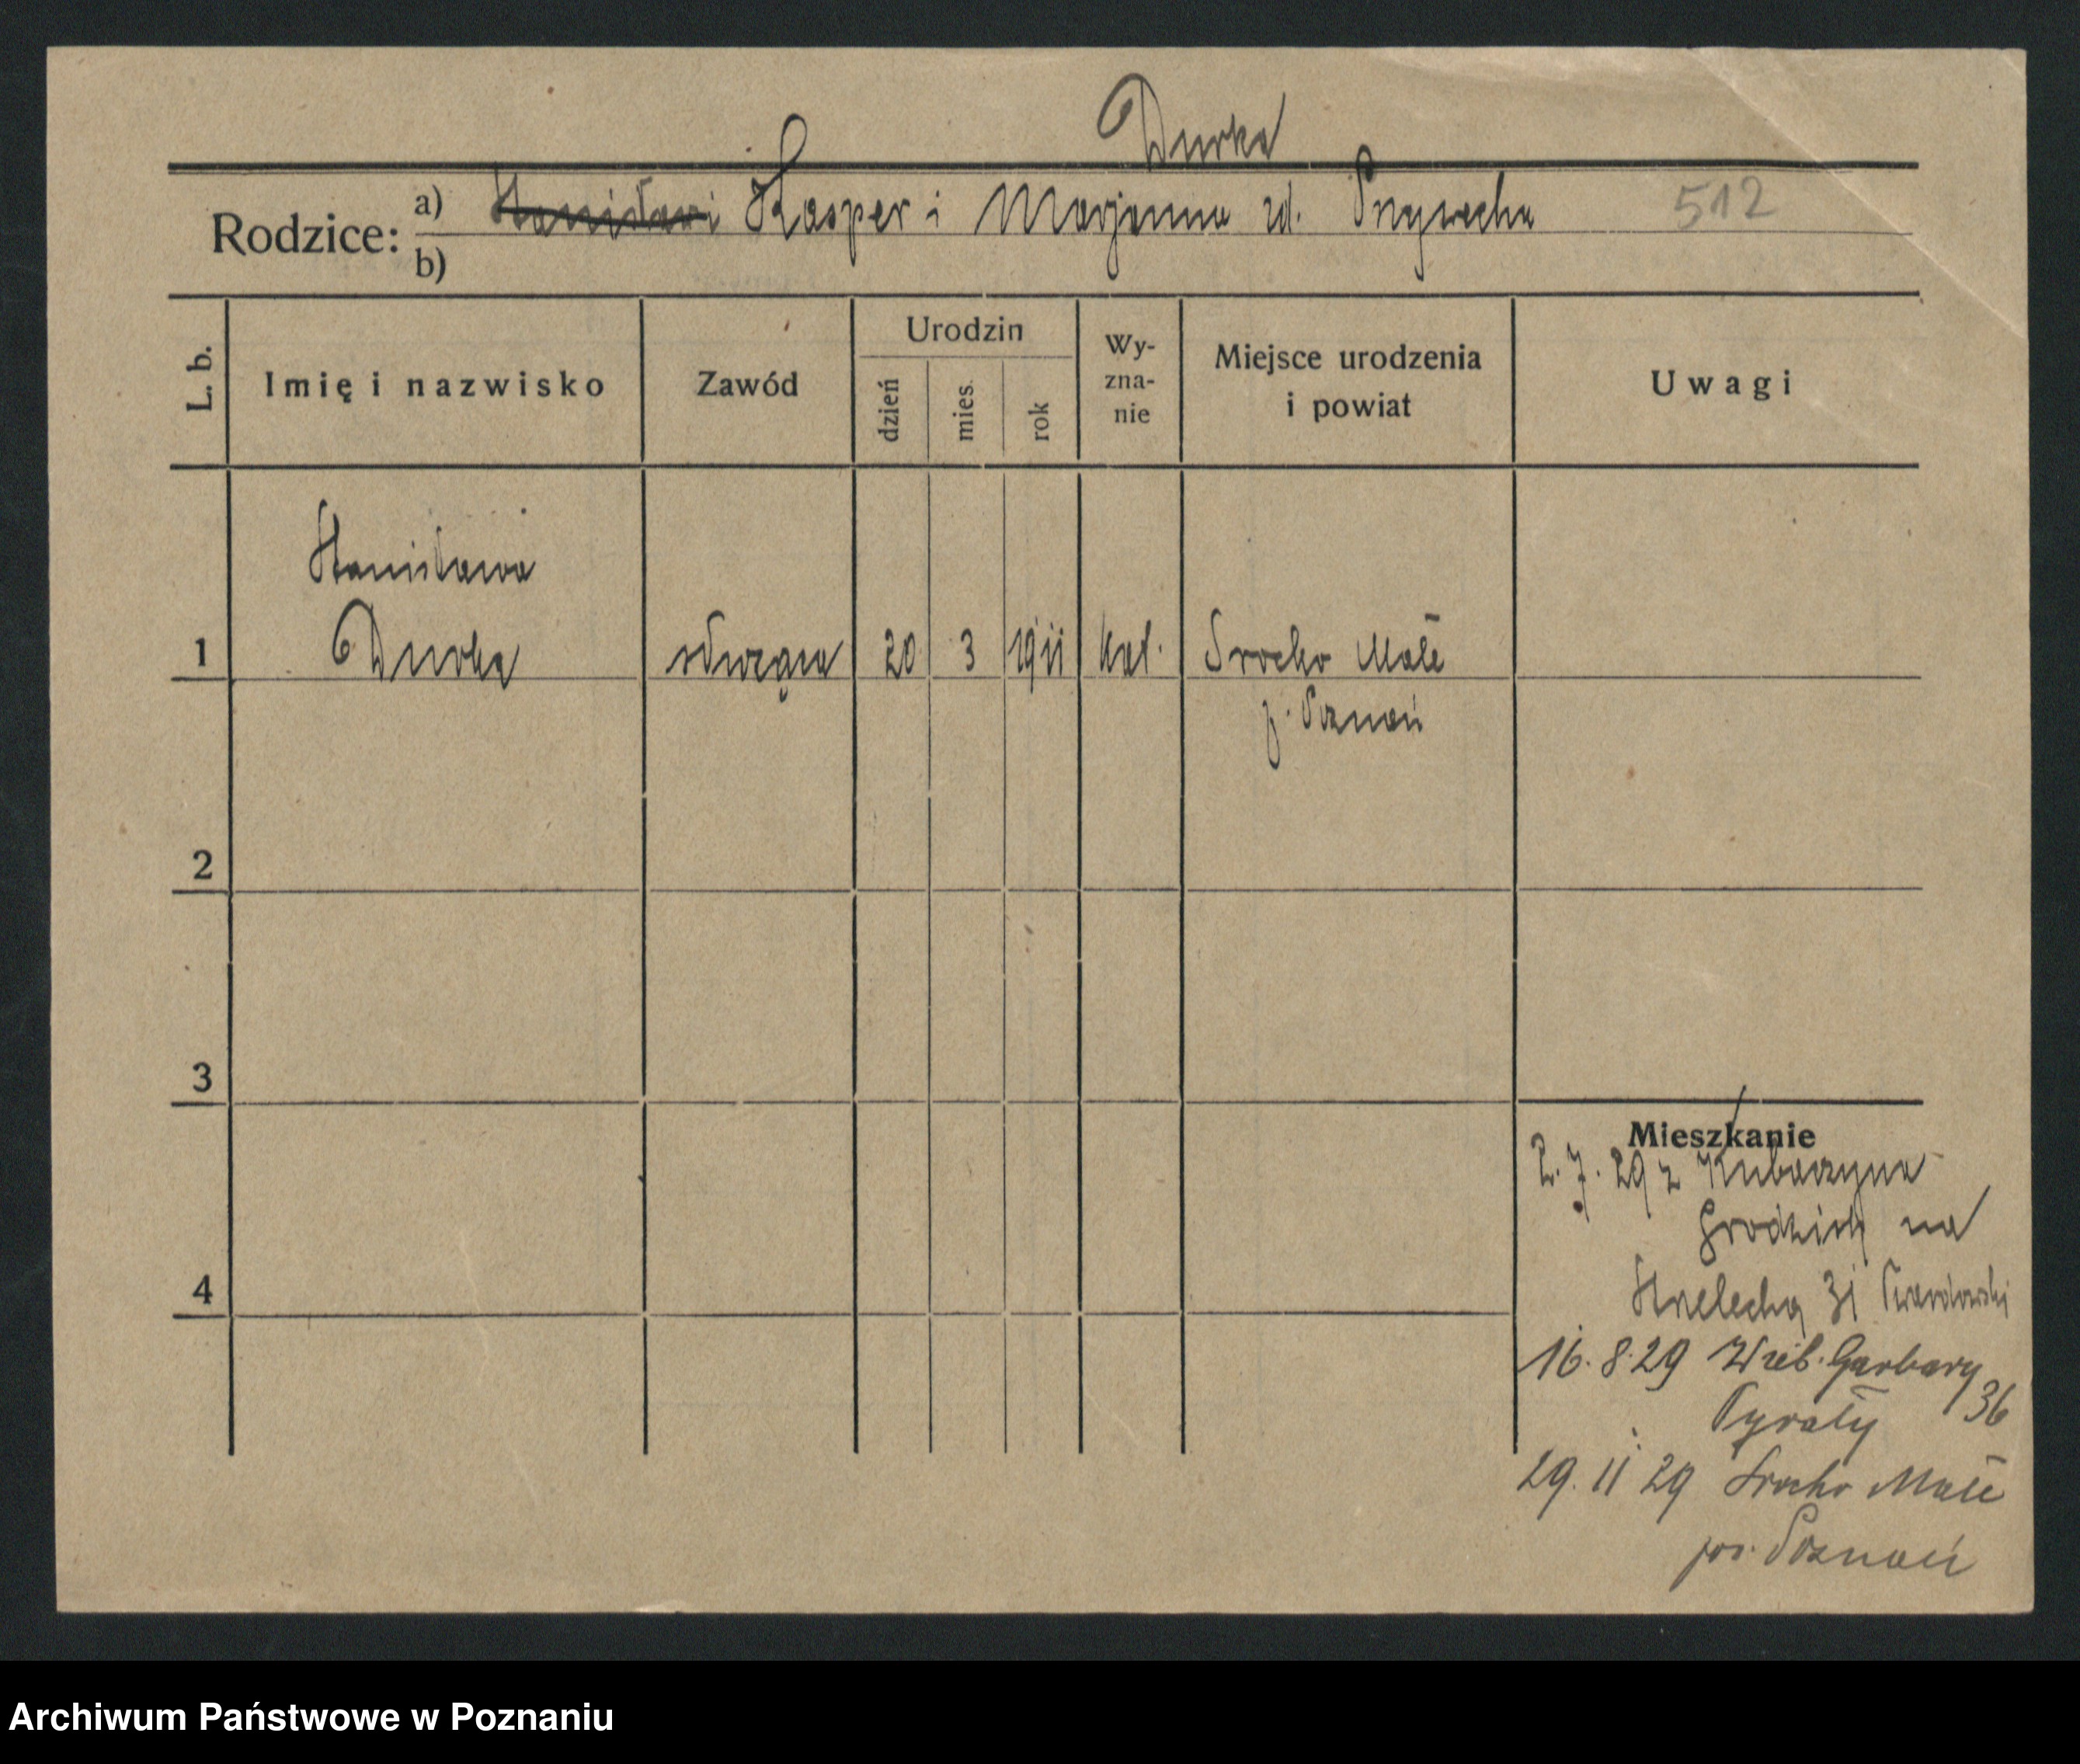 Durka
Rodzice: a) Stanisław i Kasper i Marjanna zd. 512
b)
L. b. Imię i nazwisko Zawód Urodzin dzień mies. rok Wy-zna-nie Miejsce urodzenia i powiat Uwagi
Stanisława
1 Durka służąca 20 3 1911 kat. Srocko Małe
p. Poznań
2
3
Mieszkanie
2.7.29 z Kubaczyna
Grodzisk na
4 Strzelecka 31 Twardowski
16.8.29 W. Garbary 36
29.11 29 Srocko Małe
pow. Poznań
Archiwum Państwowe w Poznaniu